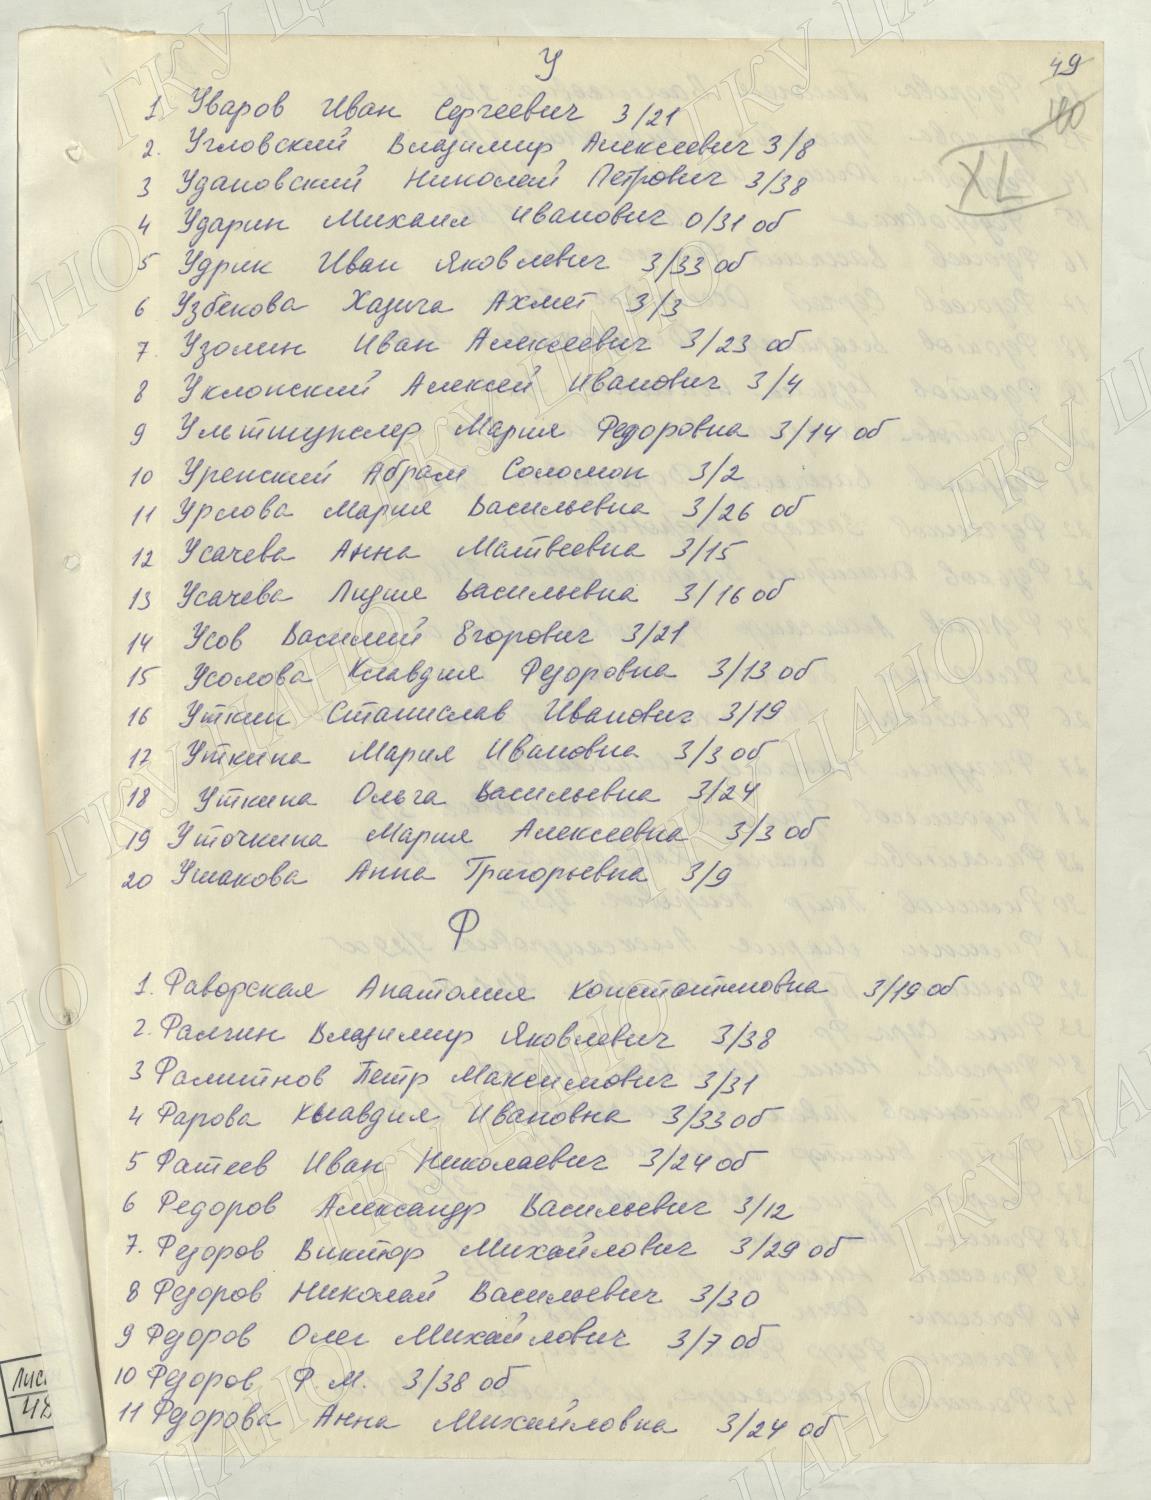 У
49
40
XL
1 Уваров Иван Сергеевич 3/21
2. Угловский Владимир Алексеевич 3/8
3 Удаловский Николай Петрович 3/38
4 Ударин Михаил Иванович 0/31 об
5 Удрик Иван Яковлевич 3/33 об
6 Узбекова Хадича Ахмет 3/3
7. Узолин Иван Алексеевич 3/23 об
8 Уклонский Алексей Иванович 3/4
9 Ультшунслер Мария Федоровна 3/14 об
10 Уренский Абрам Соломон 3/2
11 Урлова Мария Васильевна 3/26 об
12 Усачева Анна Матвеевна 3/15
13 Усачева Лидия Васильевна 3/16 об
14 Усов Василий Егорович 3/21
15 Усолова Клавдия Федоровна 3/13 об
16 Уткин Станислав Иванович 3/19
17 Уткина Мария Ивановна 3/3 об
18 Уткина Ольга Васильевна 3/24
19 Уточкина Мария Алексеевна 3/3 об
20 Ушакова Анна Григорьевна 3/9
Ф
1. Фаворская Анатолия Константиновна 3/19 об
2. Фалчин Владимир Яковлевич 3/38
3 Фамитнов Петр Максимович 3/31
4 Фарова Клавдия Ивановна 3/33 об
5 Фатеев Иван Николаевич 3/24 об
6 Федоров Александр Васильевич 3/12
7. Федоров Виктор Михайлович 3/29 об
8 Федоров Николай Васильевич 3/30
9 Федоров Олег Михайлович 3/7 об
10 Федоров Ф. М. 3/38 об
11 Федорова Анна Михайловна 3/24 об
Лис
48
ГКУ ЦАНО